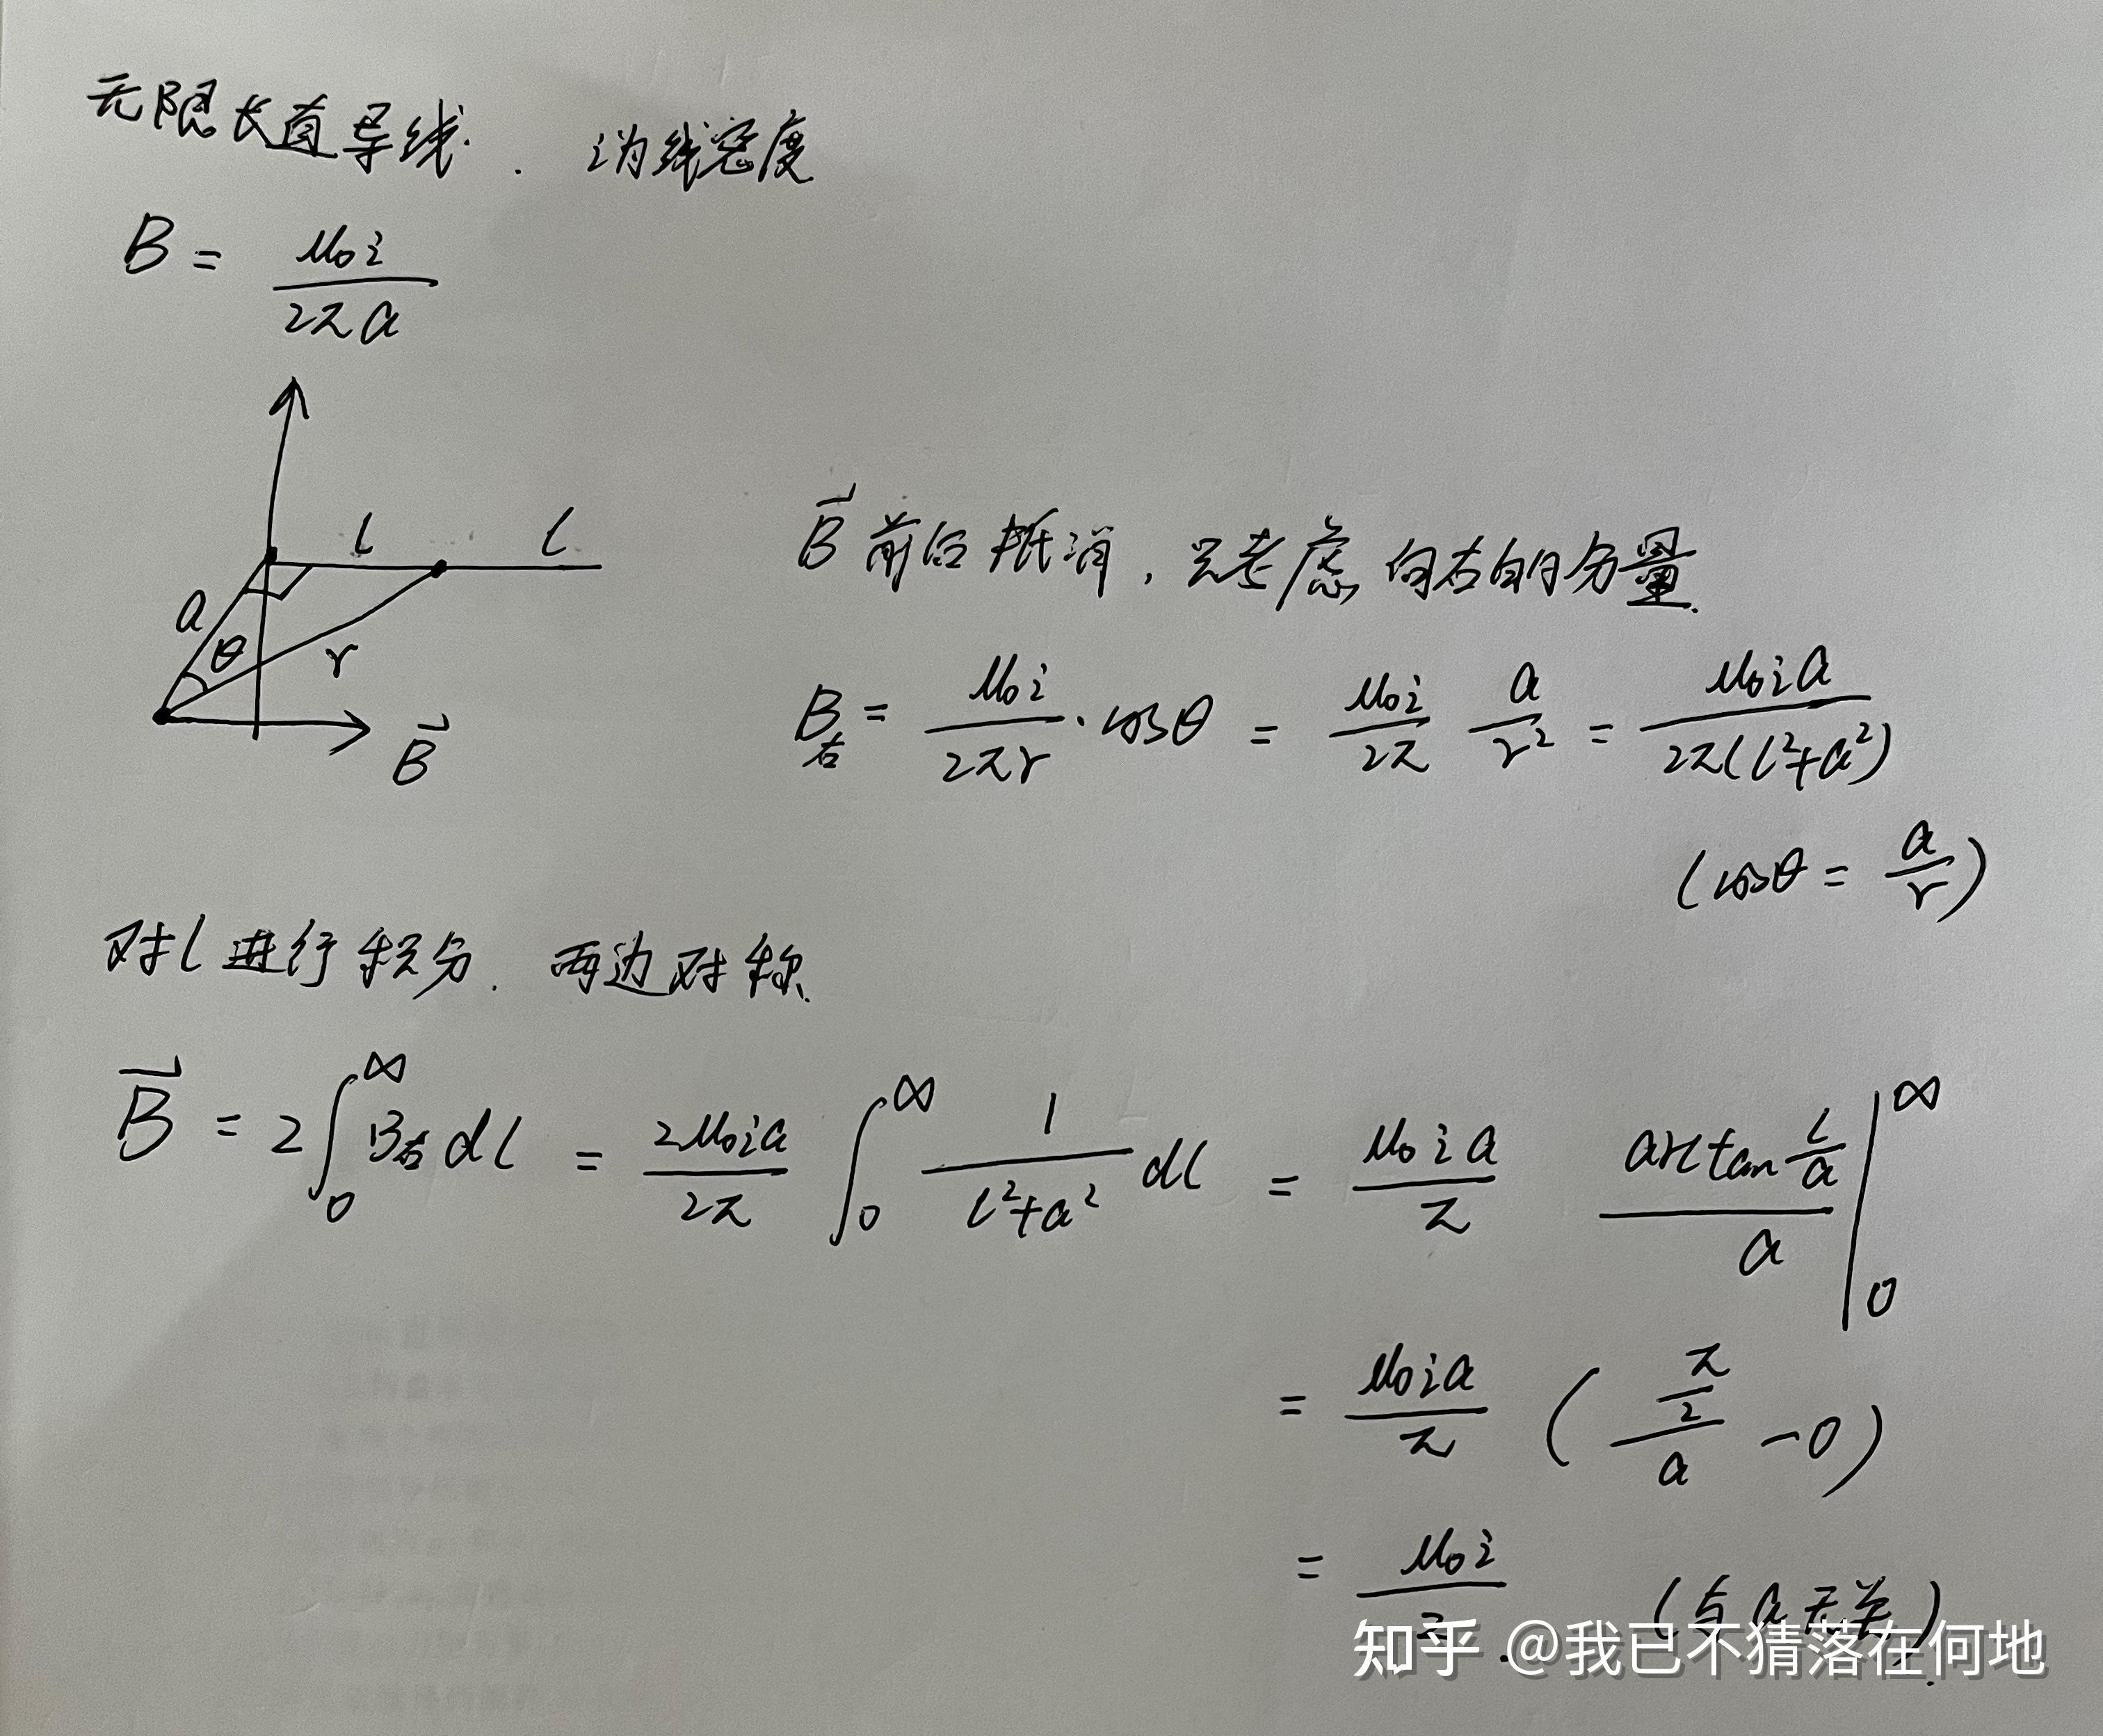 无限长直导线. i为线密度
B = μ₀i / 2πa
l l
a θ r
B⃗
B⃗ 前后抵消, 只考虑向右的分量.
B右 = μ₀i / 2πr · cosθ = μ₀i / 2π a / r² = μ₀ia / 2π(l²+a²)
(cosθ = a / r)
对l进行积分. 两边对称.
B⃗ = 2∫₀^∞ B右 dl = 2μ₀ia / 2π ∫₀^∞ 1 / (l²+a²) dl = μ₀ia / π (arctan l/a) / a |₀^∞
= μ₀ia / π ( (π/2) / a - 0)
= μ₀i / 2 (与a无关).
知乎 @我已不猜落在何地